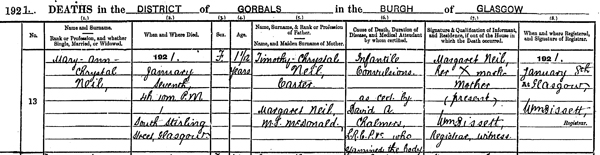 1921. DEATHS in the DISTRICT of GORBALS in the BURGH of GLASGOW
(1.) (2.) (3.) (4.) (5.) (6.) (7.) (8.)
No.
Name and Surname.
Rank or Profession, and whether
Single, Married, or Widowed.
When and Where Died.
Sex.
Age.
Name, Surname, & Rank or Profession
of Father.
Name, and Maiden Surname of Mother.
Cause of Death, Duration of
Disease, and Medical Attendant
by whom certified.
Signature & Qualification of Informant,
and Residence, if out of the House in
which the Death occurred.
When and where Registered,
and Signature of Registrar.
13
Mary-ann-
Chrystal
Neil,
1921.
January
Seventh
4h. 10m. P.M.
South Stirling
Street, Glasgow
F.
1 1/2
Years
Timothy-Chrystal
Neil,
Margaret Neil,
M.S. McDonald.
Infantile
Convulsions.
as cert. by
David A.
Chalmers,
L.R.C.P. &c who
examined the body
Margaret Neil,
her X mark
Mother
(present)
Wm Bissett,
Registrar, witness.
1921.
January 8th
At Glasgow
Wm Bissett,
Registrar.